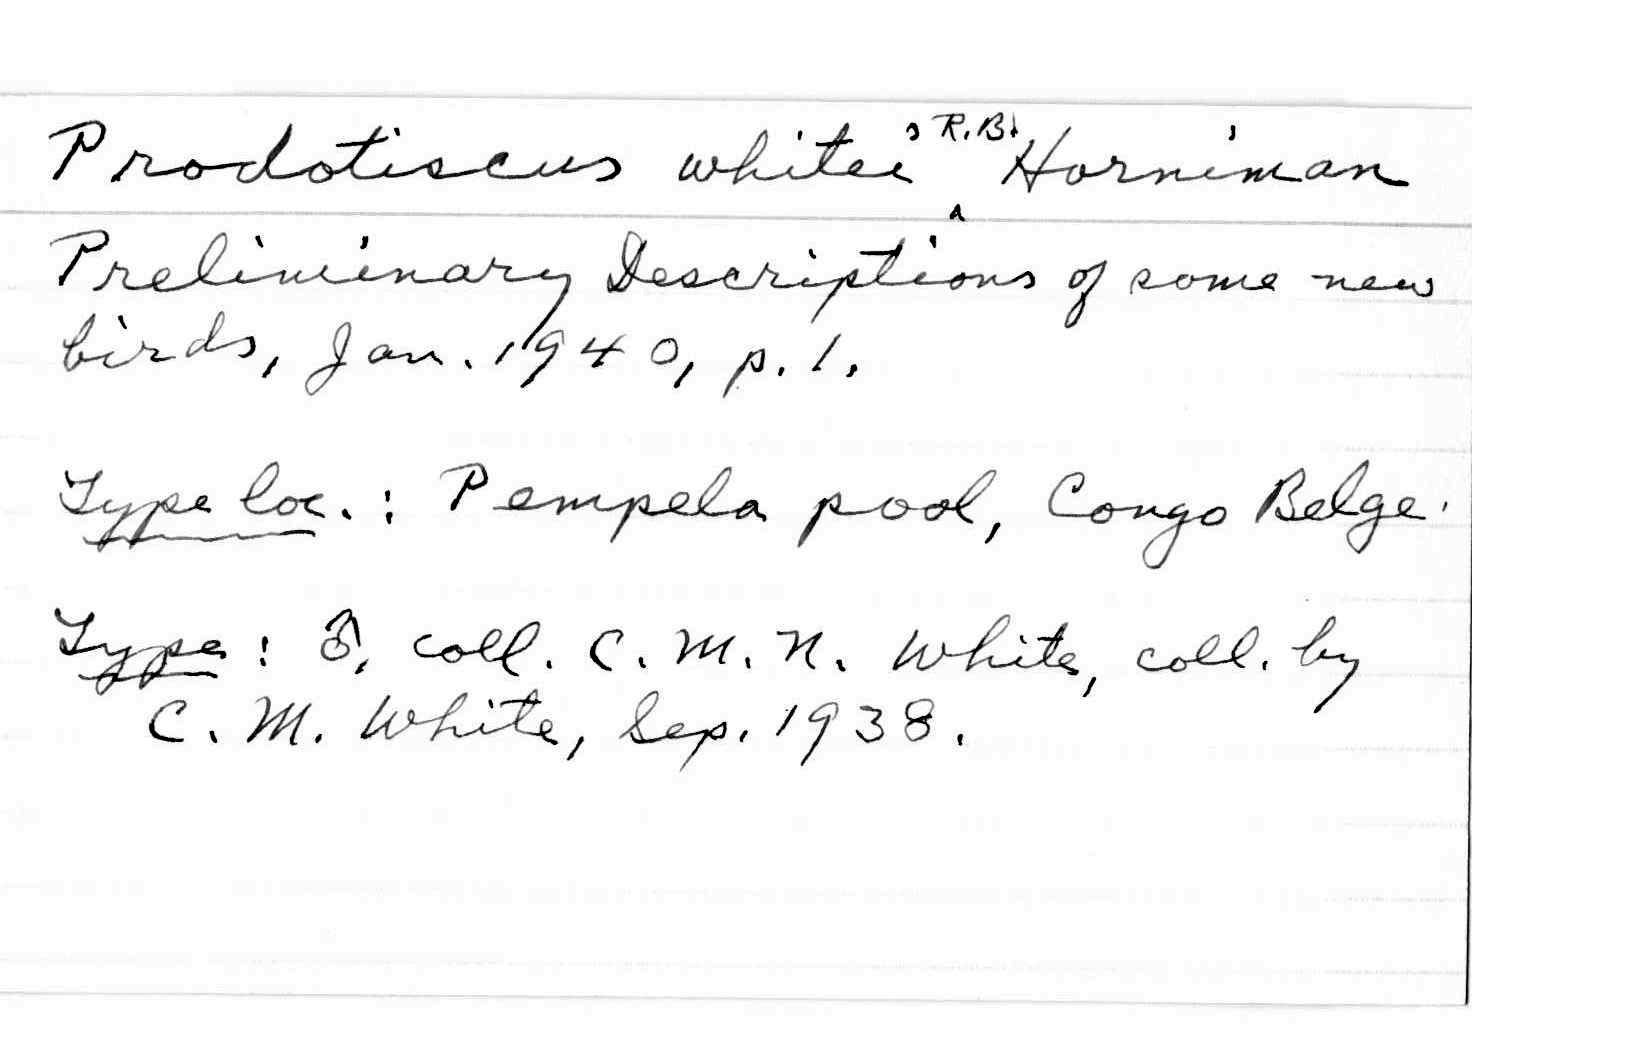 Prodotiscus whitei R.B. Horniman
Preliminary Descriptions of some new
birds, Jan. 1940, p. 1.
Type loc. : Pempela pool, Congo Belge.
Type : ♂, coll. C. M. N. White, coll. by
C. M. White, Sep. 1938.